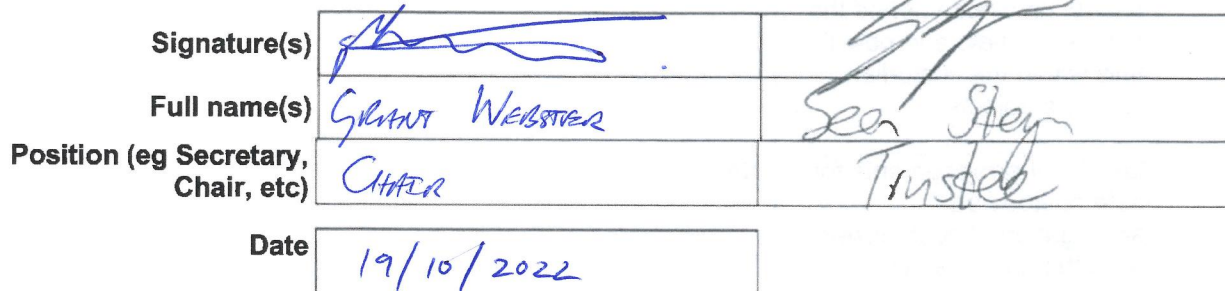 Signature(s)
Full name(s) GRANT WEBSTER Sean Steyn
Position (eg Secretary,
Chair, etc) CHAIR Trustee
Date 19/10/2022